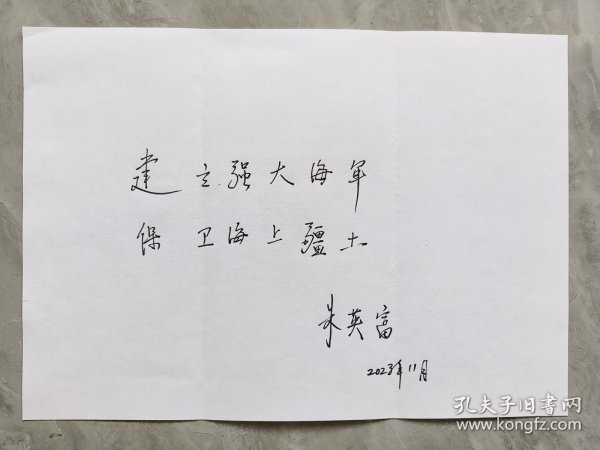 建立强大海军
保卫海上疆土
朱英富
2023年11月
孔夫子旧书网
www.kongfz.com